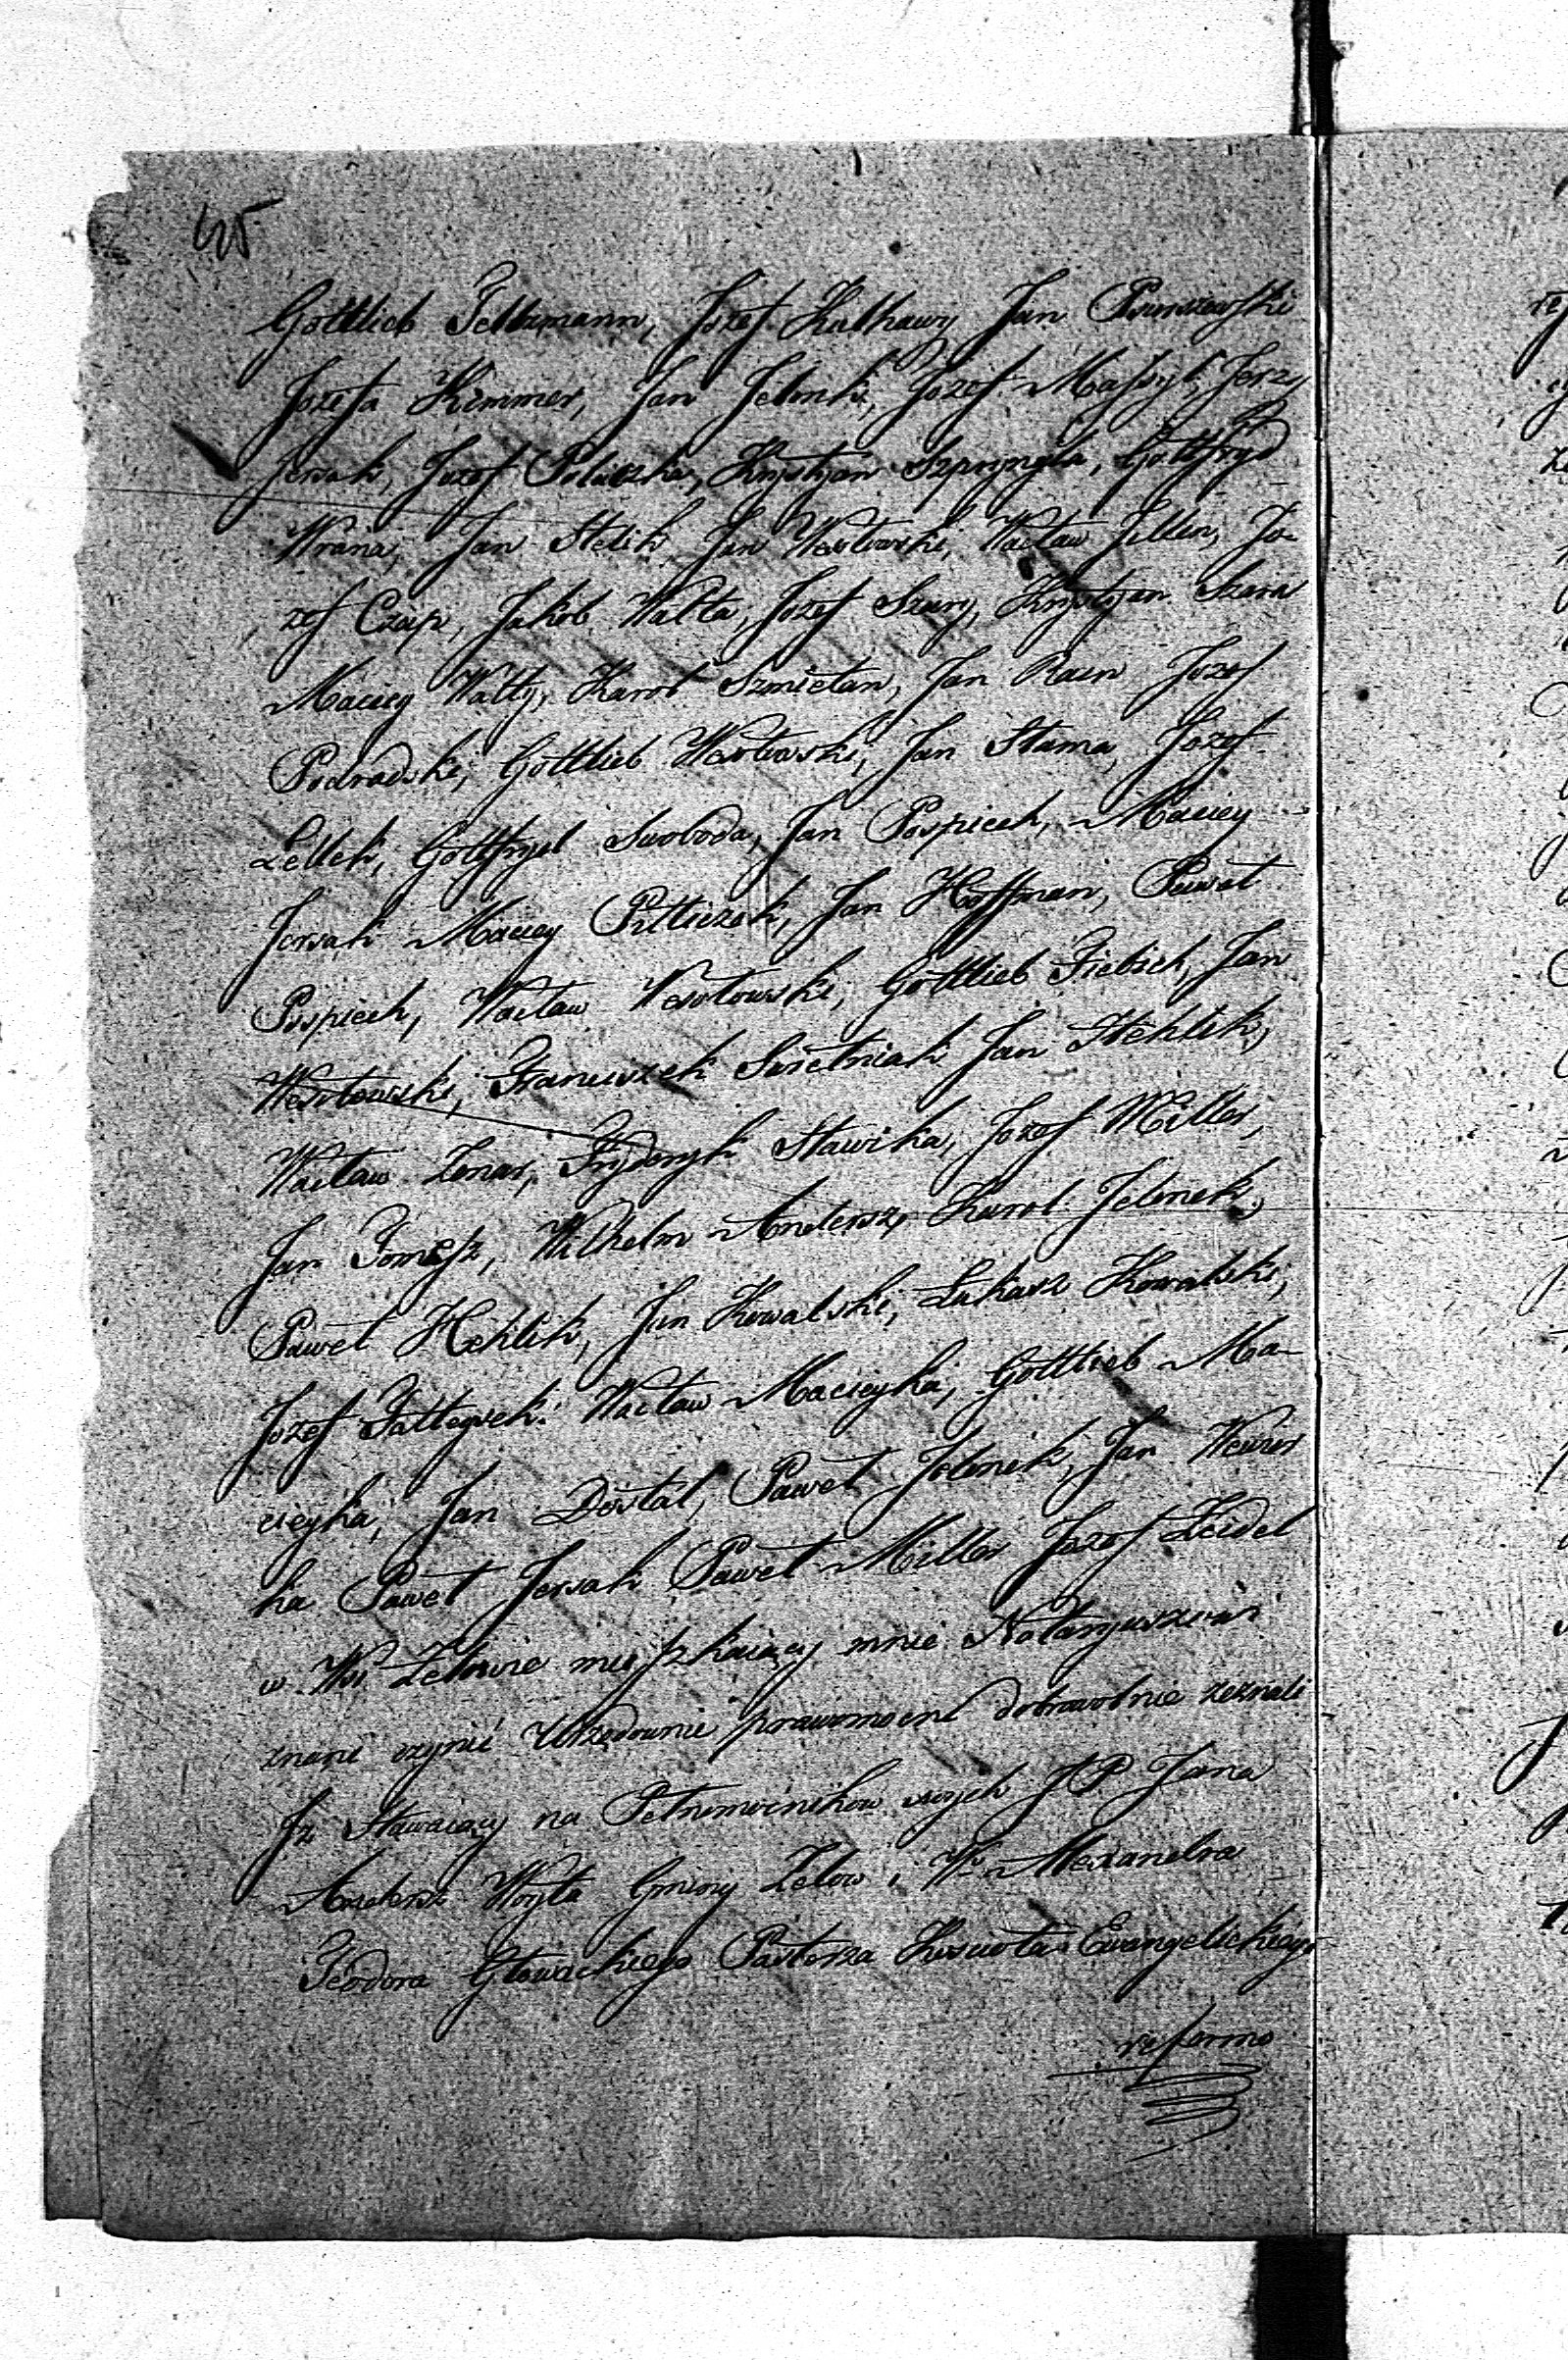 Gottlieb Feltzmann, Jozef Kulhawy Jan
Jozefa Kimmer, Jan Jelink, Jozef Jerzy
Jersak, Jozef Poliszka, Krystyan Szpryngla, Gottfryd
Wrana, Jan Stelik Jan Wesołowski, Wacław Jellin, Jo-
zef Czap, Jakob Walta, Jozef Szary, Krystyan Szara
Maciey Walty, Karol Szmietan, Jan Jozef
Podradski, Gottlieb Wesołowski, Jan Stama, Jozef
Lellek, Gottfryd Swoboda, Jan Pospiech, Maciey
Jersak Maciey Jan Hoffman, Paweł
Pospiech, Wacław Wesołowski, Gottlieb Fiebich, Jan
Wesołowski, Franciszek Swietniak Jan Stehlik,
Wacław Lenar, Fryderyk Stawika, Jozef Miller,
Jan Tomesz, Wilhelm Andersz, Karol Jelinek,
Paweł Jan Kowalski, Łukasz Kowalski,
Jozef Wacław Macieyka, Gottlieb Ma-
cieyka, Jan Dostal, Paweł Jelinek, Jan
ka Paweł Jersak Paweł Miller Jozef Zeidel
w Wsi Zelowie mieszkaiący mnie Notaryuszowi
znani czynić Urzędownie prawomocni dobrowolnie zeznali
Iż Stawaiący na Pełnomocnikow swych JP Jana
Andersz Woyta Gminy Zelow i W. Alexandra
Teodora Głowackiego Pastorza Koscioła Ewangelickiego
reformo